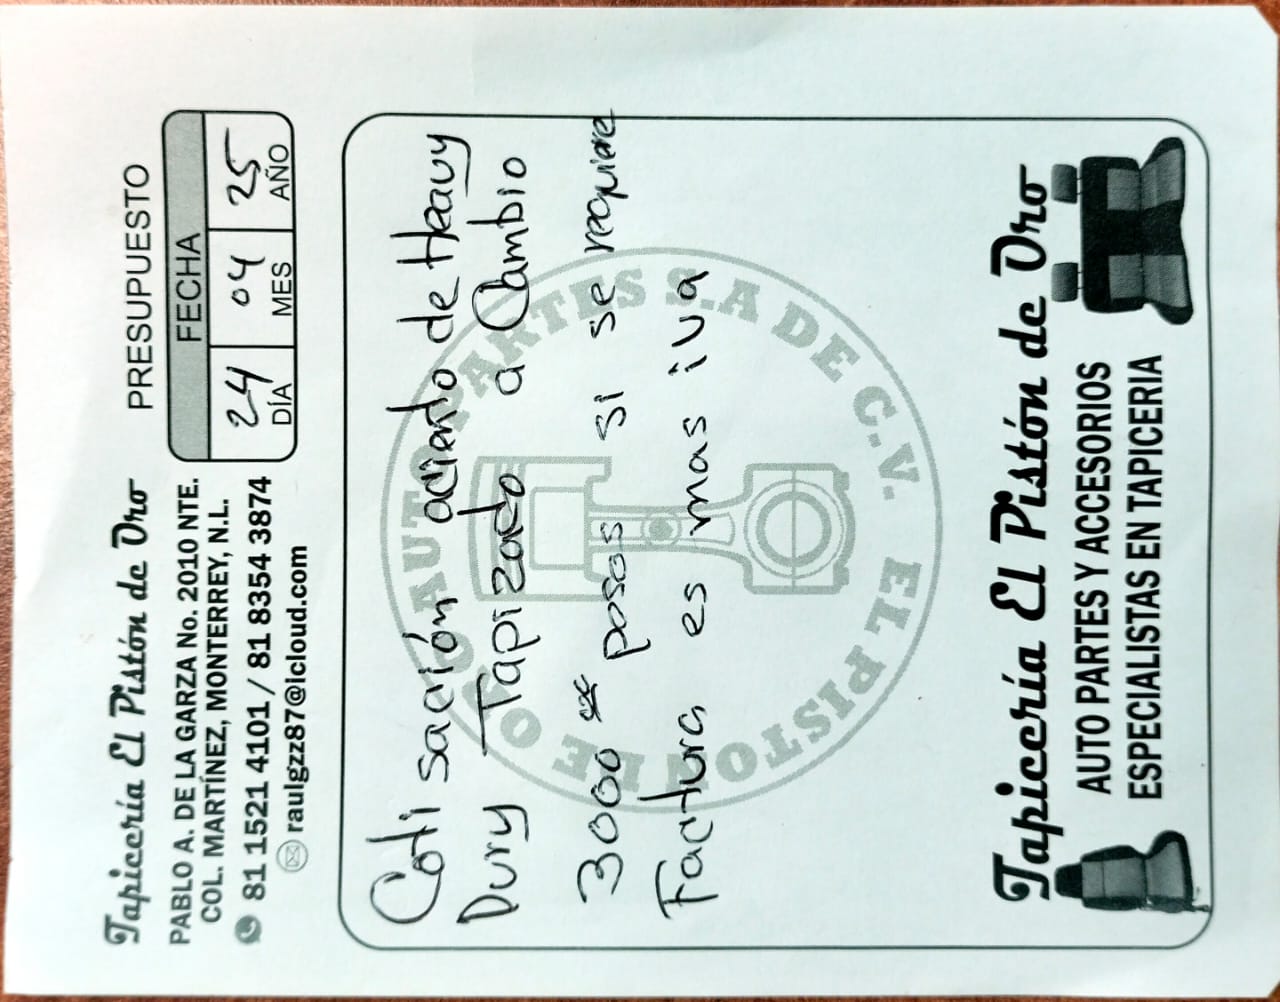 Tapicería El Pistón de Oro
PRESUPUESTO
PABLO A. DE LA GARZA No. 2010 NTE.
COL. MARTÍNEZ, MONTERREY, N.L.
81 1521 4101 / 81 8354 3874
raulgzz87@icloud.com
FECHA
24 04 25
DÍA MES AÑO
Cotisación aciento de Heavy
Dury Tapizado a Cambio
3000 pesos si se requiere
Factura es mas iva
EL PISTON DE ORO AUTOPARTES S.A DE C.V.
Tapicería El Pistón de Oro
AUTO PARTES Y ACCESORIOS
ESPECIALISTAS EN TAPICERIA